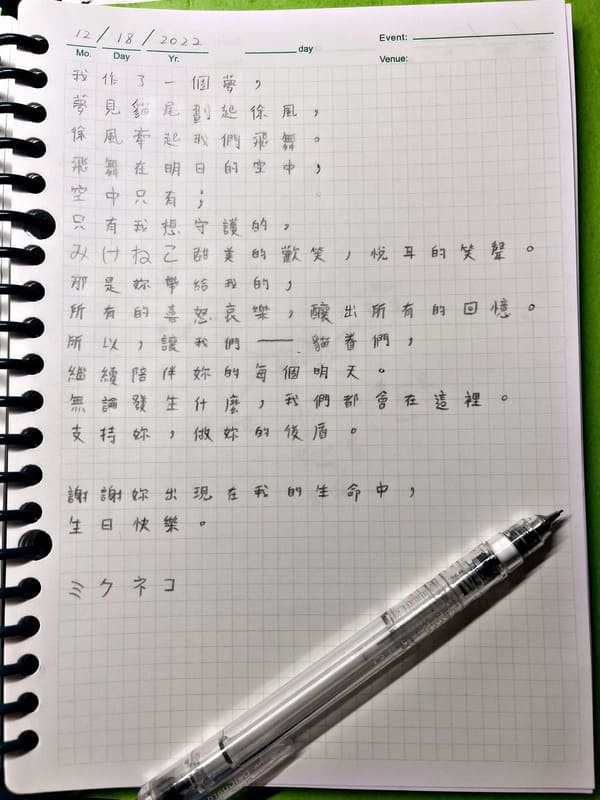 12 / 18 / 2022
Mo. Day Yr. day Event: Venue:
我作了一個夢，
夢見貓尾劃起徐風，
徐風牽起我們飛舞。
飛舞在明日的空中，
空中只有；
只有我想守護的，
みけねこ甜美的歡笑，悅耳的笑聲。
那是妳帶給我的，
所有的喜怒哀樂，釀出所有的回憶。
所以，讓我們——貓眷們，
繼續陪伴妳的每個明天。
無論發生什麼，我們都會在這裡。
支持妳，做妳的後盾。
謝謝妳出現在我的生命中，
生日快樂。
ミケネコ